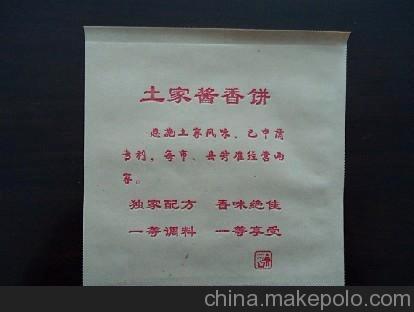 土家酱香饼
恩施土家风味，已申请
专利，每市、县特准经营两
家。
独家配方 香味绝佳
一等调料 一等享受
china.makepolo.com